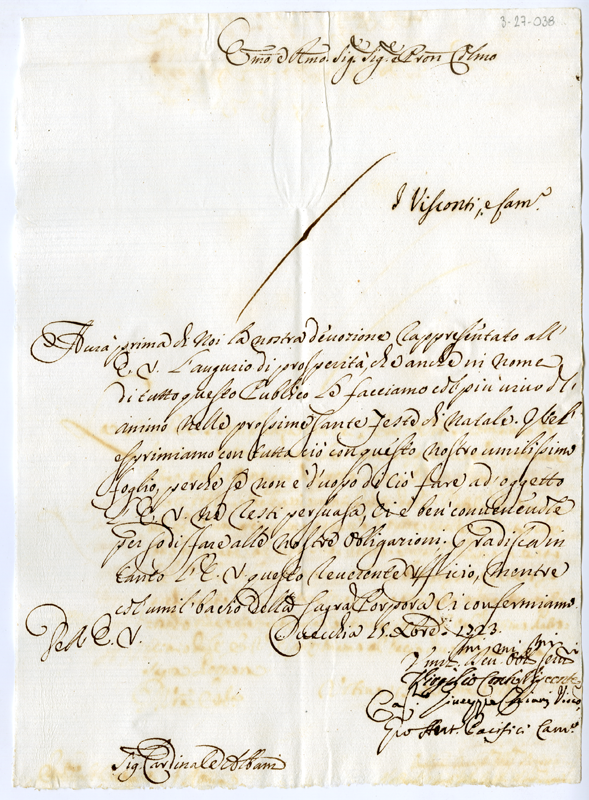 3-27-038
Emo e Rmo Sig.re Sig.re e Pron Colmo
I Visconti, e Cam.o
Aurà prima di Noi la nostra deuozione rappresentato all'
E. V. l'augurio di prosperità, che anche in nome
di tutto questo Publico Le facciamo col più uiuo dell'
animo nelle prossime Sante feste di Natale.
esprimiamo con tutto ciò con questo nostro umilissimo
foglio, perche se non è d'uopo di ciò fare ad oggetto
L'E. V. ne resti persuasa, ci è ben conueneuole
per sodisfare alle nostre obligazioni. Gradisca in
tanto l'E. V. questo reuerente Vfficio, mentre
col umil bacio della Sagra Porpora ci confermiamo
Dell'E. V. 15. Xbre 1723.
mi mi mi
Vmil. Deu. Obl. Seru.
Visconte
Giuseppe Visco.
Gio Ant. Pacifici Cam.o
Sig. Cardinale Albani